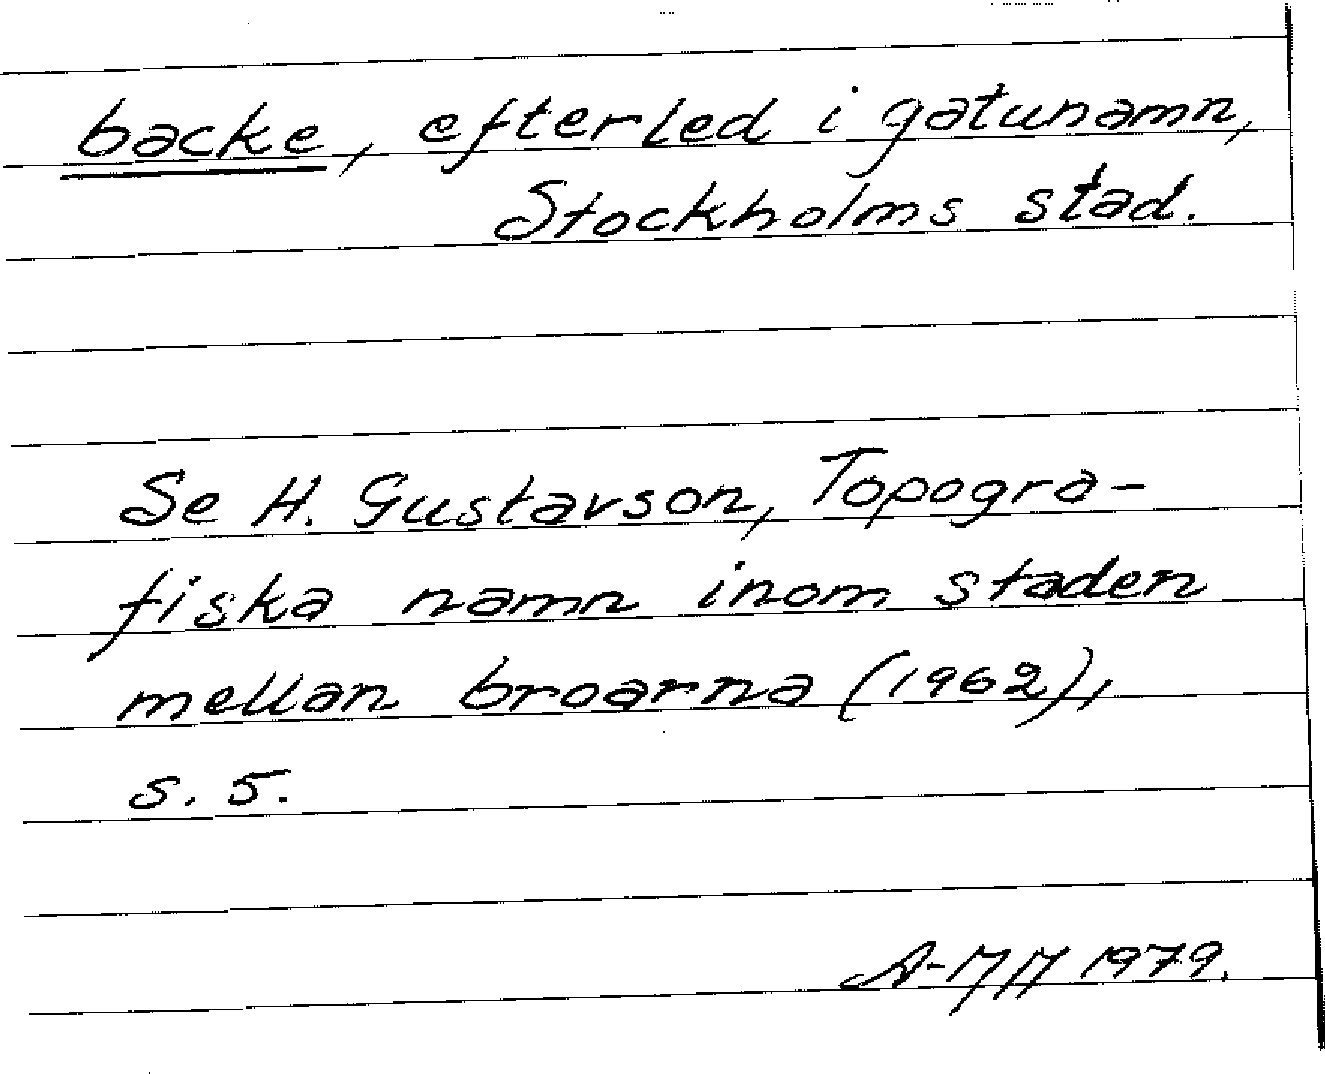 backe, efterled i gatunamn,
Stockholms stad.
Se H. Gustavson, Topogra-
fiska namn inom staden
mellan broarna (1962),
s. 5.
1979.